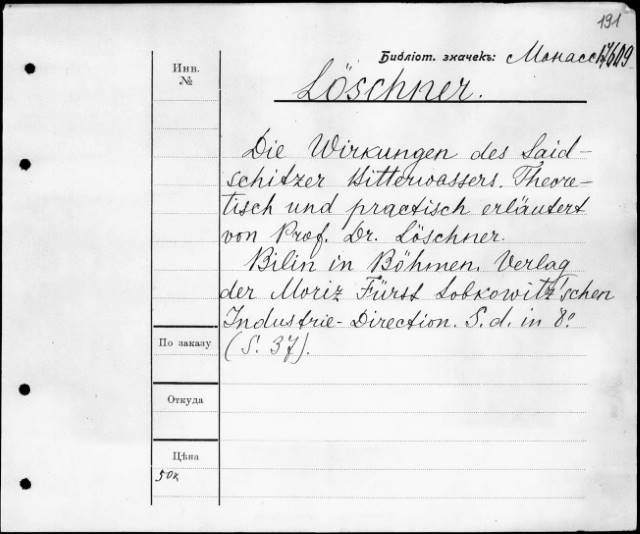 191
Библіот. значекъ: Монасс 17609
Инв.
№
Löschner.
Die Wirkungen des Said-
schitzer Bitterwassers. Theore-
tisch und practisch erläutert
von Prof. Dr. Löschner.
Bilin in Böhmen. Verlag
der Moriz Fürst Lobkowitz'schen
Industrie-Direction. S. d. in 8º
(S. 37).
По заказу
Откуда
Цѣна
50к